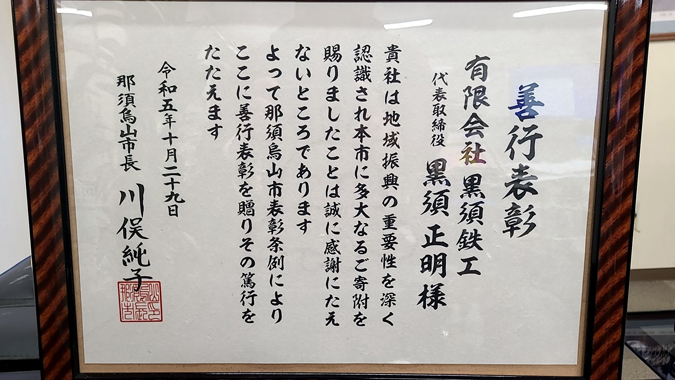 善行表彰
有限会社 黒須鉄工
代表取締役 黒須 正明様
貴社は地域振興の重要性を深く
認識され本市に多大なるご寄附を
賜りましたことは誠に感謝にたえ
ないところであります
よって那須烏山市表彰条例により
ここに善行表彰を贈りその篤行を
たたえます
令和五年十月二十九日
那須烏山市長 川俣純子